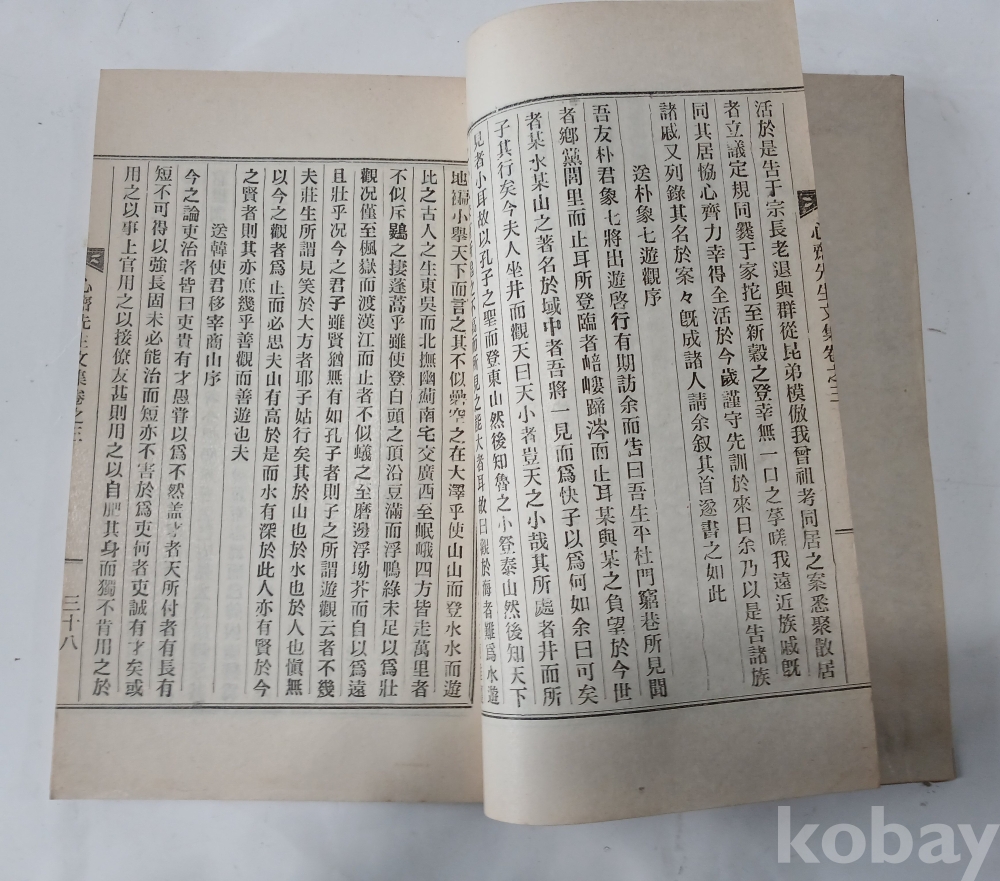 心齋先生文集卷之三
活於是告于宗長老退與群從昆弟模倣我曾祖考同居之案悉聚散居
者立議定規同爨于家抁至新穀之登幸無一口之莩嗟我遠近族戚旣
同其居恊心齊力幸得全活於今歲謹守先訓於來日余乃以是告諸族
諸戚又列錄其名於案々旣成諸人請余叙其首遂書之如此
送朴象七遊觀序
吾友朴君象七將出遊啓行有期訪余而告曰吾生平杜門窮巷所見聞
者鄕黨閭里而止耳所登臨者嵭嶁蹄涔而止耳某與某之負望於今世
者某水某山之著名於域中者吾將一見而爲快子以爲何如余曰可矣
子其行矣今夫人坐井而觀天曰天小者豈天之小哉其所處者井而所
見者小耳故以孔子之聖而登東山然後知魯之小登泰山然後知天下
之能大者耳故曰觀於海者難爲水遊
地褊小擧天下而言之其不似礨空之在大澤乎使山山而登水水而遊
比之古人之生東吳而北撫幽薊南宅交廣西至岷峨四方皆走萬里者
不似斥鷃之捿蓬蒿乎雖使登白頭之頂沿豆滿而浮鴨綠未足以爲壯
觀况僅至楓嶽而渡漢江而止者不似蟻之至磨邊浮坳芥而自以爲遠
且壯乎况今之君子雖賢猶無有如孔子者則子之所謂遊觀云者不幾
夫莊生所謂見笑於大方者耶子姑行矣其於山也於水也於人也愼無
以今之觀者爲止而必思夫山有高於是而水有深於此人亦有賢於今
之賢者則其亦庶幾乎善觀而善遊也夫
送韓使君移宰商山序
今之論吏治者皆曰吏貴有才愚甞以爲不然盖才者天所付者有長有
短不可得以強長固未必能治而短亦不害於爲吏何者吏誠有才矣或
用之以事上官用之以接僚友甚則用之以自肥其身而獨不肯用之於
心齋先生文集卷之三
三十八
kobay